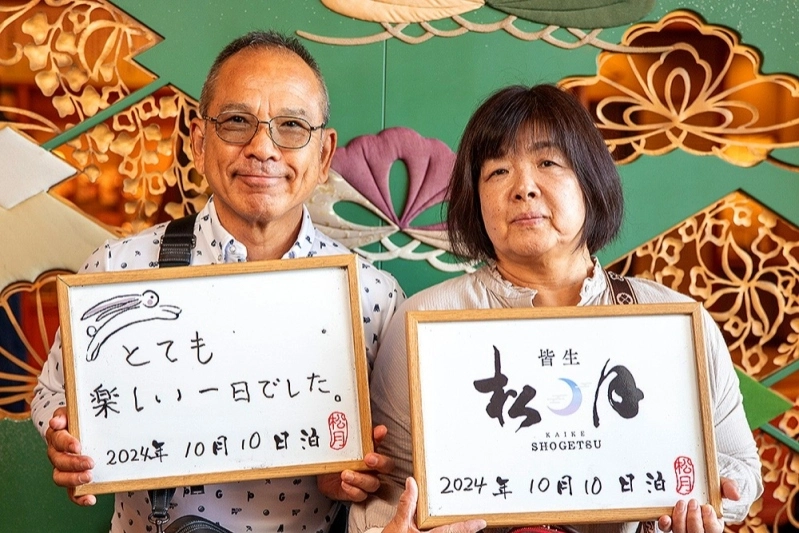 とても
楽しい一日でした。
2024年 10月10日泊
松月
皆生
松月
KAIKE
SHOGETSU
2024年 10月10日泊
松月